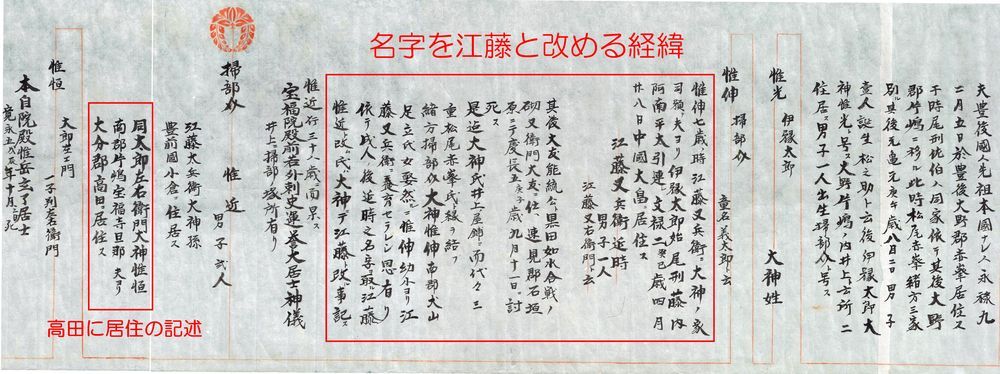 名字を江藤と改める経緯
夫豊後大神人
先祖本国アレ人永禄九
二月五日於豊後大野郡赤峯居住ス
干時尾刑
伯入同家依り其後大野
郡片嶋ニ移ル此時松尾赤峯緒方三家
別
元亀元
歳八月二日男子
壹人誕生松之助ト云後伊縁太郎大
神惟光ト号ス大野片嶋ノ内井上ト云所ニ
住居ス男子一人出生掃部
ト号ス
大神姓
惟光 伊縁太郎
惟伸 掃部
童名義太郎ト云
惟伸七歳ノ時江藤又兵衛ニ大神ノ家
司領ス夫ヨリ伊縁太郎始尾刑藤内
阿南平太引連レ文禄二癸巳歳四月
廿八日中国大畠居住ス
江藤又兵衛近時
江藤又右衛門ト云
男子一人
其後大友能統公黒田如水合戦ノ
砌又衛門大友ニ仕、速見郡石垣
原ニテ慶長五庚子歳九月十一日ニ討
死ス
是迄大神氏井上屋
而代々三
重松尾赤峯氏縁ヲ結フ
緒方掃部
大神惟伸南郡大山
足立氏女娶
惟伸幼少ヨリ江
藤又兵衛ニ養育セラレシ恩有リ
依テ氏人ノ後近時之名字最江藤
惟近ニ改ム氏ハ大神ニテ江藤ト改ム事記ス
惟近行三十八歳ニ
ス
宝福院殿前右外刺史運
大居士神儀
井上掃部ノ
所有リ
掃部
惟近
男子弐人
江藤太兵衛大神孫
豊前国小倉ニ住居ス
同太郎左右衛門大神惟恒
南郡片嶋宝福寺旦那夫ヨリ
大分郡高田ニ居住ス
高田に居住の記述
惟恒
太郎左エ門
一子
左右衛門
本自院殿惟岳立了居士
寛永五
年十月八日死